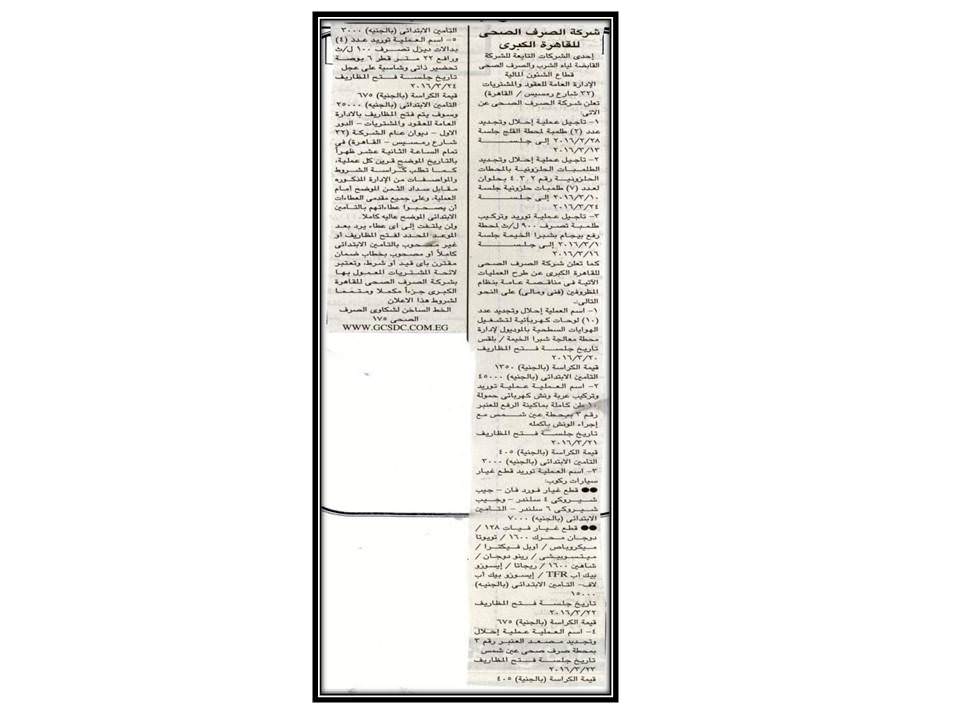 شركة الصرف الصحى
للقاهرة الكبرى
إحدى الشركات التابعة للشركة
القابضة لمياه الشرب والصرف الصحى
قطاع الشئون المالية
الإدارة العامة للعقود والمشتريات
(٣٢ شارع رمسيس / القاهرة)
تعلن شركة الصرف الصحى عن
الآتى:
١- تأجيل عملية إحلال وتجديد
عدد (٢) طلمبة لمحطة القلج جلسة
٢٠١٦/٢/٢٨ إلى جلسة
٢٠١٦/٣/١٣
٢- تأجيل عملية إحلال وتجديد
الطلمبات الحلزونية بالمحطات
الحلزونية رقم ٢، ٣، ٤ بحلوان
لعدد (٧) طلمبات حلزونية جلسة
٢٠١٦/٣/١٠ إلى جلسة
٢٠١٦/٣/٢٤
٣- تأجيل عملية توريد وتركيب
طلمبة تصرف ٩٠٠ ل/ث لمحطة
رفع بيجام بشبرا الخيمة جلسة
٢٠١٦/٣/١ إلى جلسة
٢٠١٦/٣/١٦
كما تعلن شركة الصرف الصحى
للقاهرة الكبرى عن طرح العمليات
الآتية فى مناقصة عامة بنظام
المظروفين (فنى ومالى) على النحو
التالى:-
١- اسم العملية إحلال وتجديد عدد
(١٠) لوحات كهربائية لتشغيل
الهوايات السطحية بالموديول لإدارة
محطة معالجة شبرا الخيمة / بلقس
تاريخ جلسة فتح المظاريف
٢٠١٦/٣/٢٠
قيمة الكراسة (بالجنية) ١٣٥٠
التأمين الابتدائى (بالجنيه) ٤٥٠٠٠
٢- اسم العملية عملية توريد
وتركيب عربة ونش كهربائى حمولة
١٠ طن كاملة بماكينة الرفع للعنبر
رقم ٣ بمحطة عين شمس مع
إجراء الونش بأكمله
تاريخ جلسة فتح المظاريف
٢٠١٦/٣/٢١
قيمة الكراسة (بالجنية) ٤٠٥
التأمين الابتدائى (بالجنيه) ٣٠٠٠
٣- اسم العملية توريد قطع غيار
سيارات ركوب:
●● قطع غيار فورد فان - جيب
شيروكى ٤ سلندر - وجيب
شيروكى ٦ سلندر - التأمين
الابتدائى (بالجنيه) ٧٠٠٠
●● قطع غيار فيات ١٢٨ /
دوجان محرك ١٦٠٠ / تويوتا
ميكروباص / أوبل فيكترا /
ميتسوبيشى / رينو دوجان /
شاهين ١٦٠٠ / ريجاتا / إيسوزو
بيك أب TFR / إيسوزو بيك أب
لاف- التأمين الابتدائى (بالجنيه)
١٥٠٠٠
تاريخ جلسة فتح المظاريف
٢٠١٦/٣/٢٢
قيمة الكراسة (بالجنية) ٦٧٥
٤- اسم العملية عملية إحلال
وتجديد مصعد العنبر رقم ٣
بمحطة صرف صحى عين شمس
تاريخ جلسة فتح المظاريف
٢٠١٦/٣/٢٣
قيمة الكراسة (بالجنية) ٤٠٥
التأمين الابتدائى (بالجنية) ٣٠٠٠
٥- اسم العملية توريد عدد (٤)
بدالات ديزل تصرف ١٠٠ ل/ث
ورافع ٢٢ متر قطر ٦ بوصة
تحضير ذاتى وشاسية على عجل
تاريخ جلسة فتح المظاريف
٢٠١٦/٣/٢٤
قيمة الكراسة (بالجنيه) ٦٧٥
التأمين الابتدائى (بالجنيه) ٢٥٠٠٠
وسوف يتم فتح المظاريف بالادارة
العامة للعقود والمشتريات - الدور
الاول - ديوان عام الشركة (٣٢
شارع رمسيس - القاهرة) فى
تمام الساعة الثانية عشر ظهراً
بالتاريخ الموضح قرين كل عملية،
كما تطلب كراسة الشروط
والمواصفات من الإدارة المذكوره
مقابل سداد الثمن الموضح أمام
العملية، وعلى جميع مقدمى العطاءات
أن يصحبوا عطاءاتهم بالتأمين
الابتدائى الموضح عاليه كاملاً.
ولن يلتفت إلى اى عطاء يرد بعد
الموعد المحدد لفتح المظاريف أو
غير مصحوب بالتأمين الابتدائى
كاملاً أو مصحوب بخطاب ضمان
مقترن باى قيد أو شرط، وتعتبر
لائحة المشتريات المعمول بها
بشركة الصرف الصحى للقاهرة
الكبرى جزءاً مكملا ومتمما
لشروط هذا الاعلان
الخط الساخن لشكاوى الصرف
الصحى ١٧٥
WWW.GCSDC.COM.EG